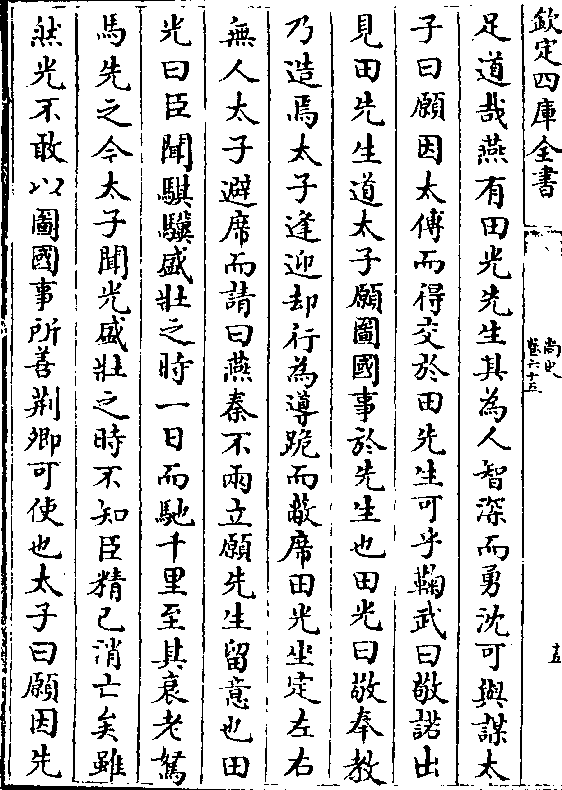 欽定四庫全書
尚史
卷六十五
五
足道哉燕有田光先生其為人智深而勇沈可與謀太
子曰願因太傅而得交於田先生可乎鞠武曰敬諾出
見田先生道太子願圖國事於先生也田光曰敬奉教
乃造焉太子逢迎却行為導跪而蔽席田光坐定左右
無人太子避席而請曰燕秦不兩立願先生留意也田
光曰臣聞騏驥盛壯之時一日而馳千里至其衰老駑
馬先之今太子聞光盛壯之時不知臣精已消亡矣雖
然光不敢以圖國事所善荆卿可使也太子曰願因先